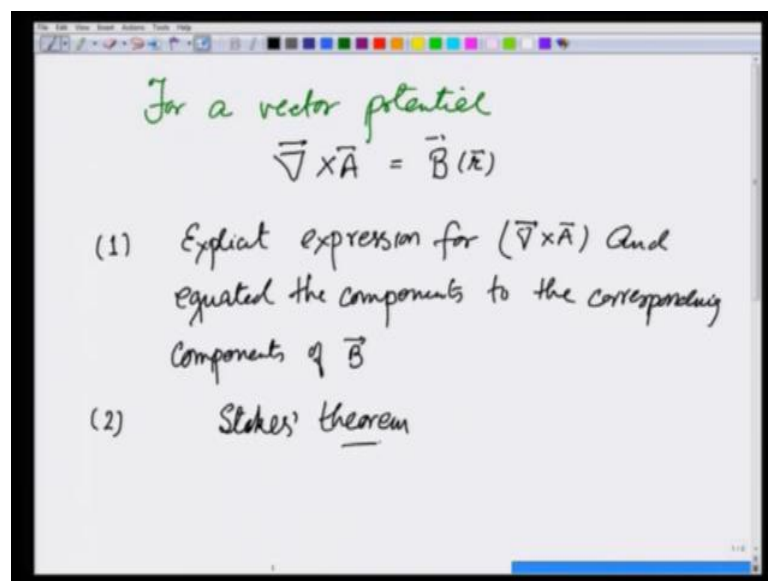 File Edit View Insert Actions Tools Help
For a vector potential
∇⃗ × A⃗ = B⃗ (r⃗)
(1) Explicit expression for (∇⃗ × A⃗) and
equated the components to the corresponding
components of B⃗
(2) Stokes' theorem